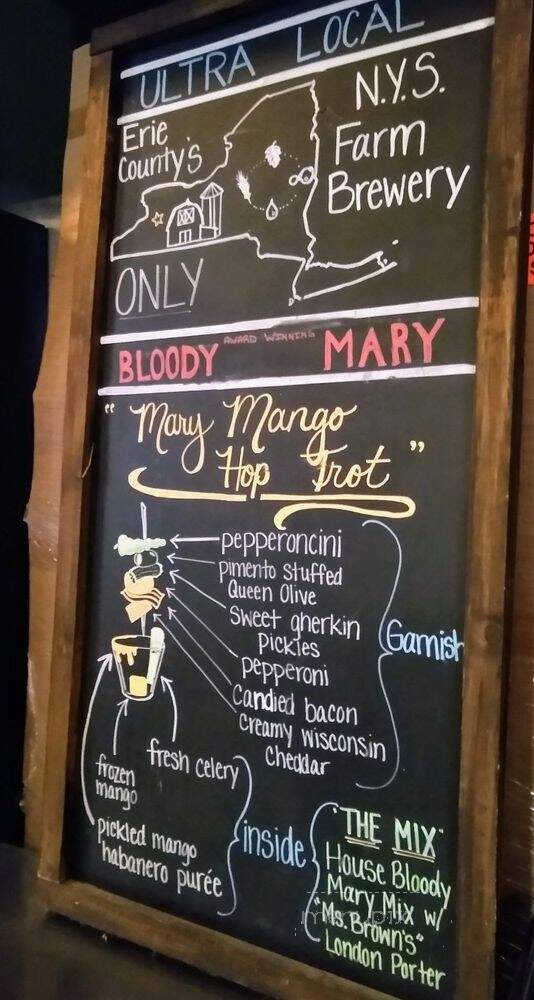 ULTRA LOCAL
Erie
County's
N.Y.S.
Farm
Brewery
ONLY
AWARD WINNING
BLOODY MARY
"Mary Mango
Hop Trot"
pepperoncini
pimento stuffed
Queen Olive
Sweet gherkin
Pickles
pepperoni
Candied bacon
creamy wisconsin
Cheddar
Garnish
fresh celery
frozen
mango
pickled mango
habanero purée
inside
"THE MIX"
House Bloody
Mary Mix w/
"Ms. Brown's"
London Porter